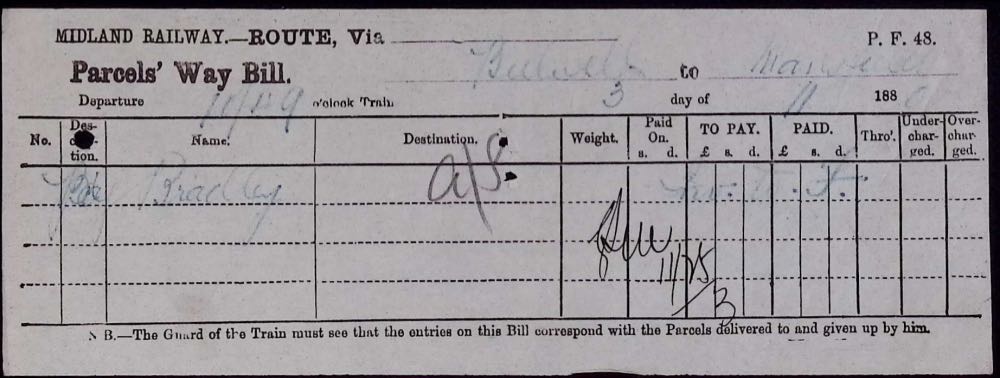 MIDLAND RAILWAY.—ROUTE, Via
P. F. 48.
Parcels' Way Bill.
Bulwell to Mansfield
Departure 10/49 o'clock Train 3 day of 11 188
No. Des- tion. Name. Destination. Weight. Paid On. s. d. TO PAY. £ s. d. PAID. £ s. d. Thro'. Under-char-ged. Over-char-ged.
Bradley a/s
11/25
B
N B.—The Guard of the Train must see that the entries on this Bill correspond with the Parcels delivered to and given up by him.